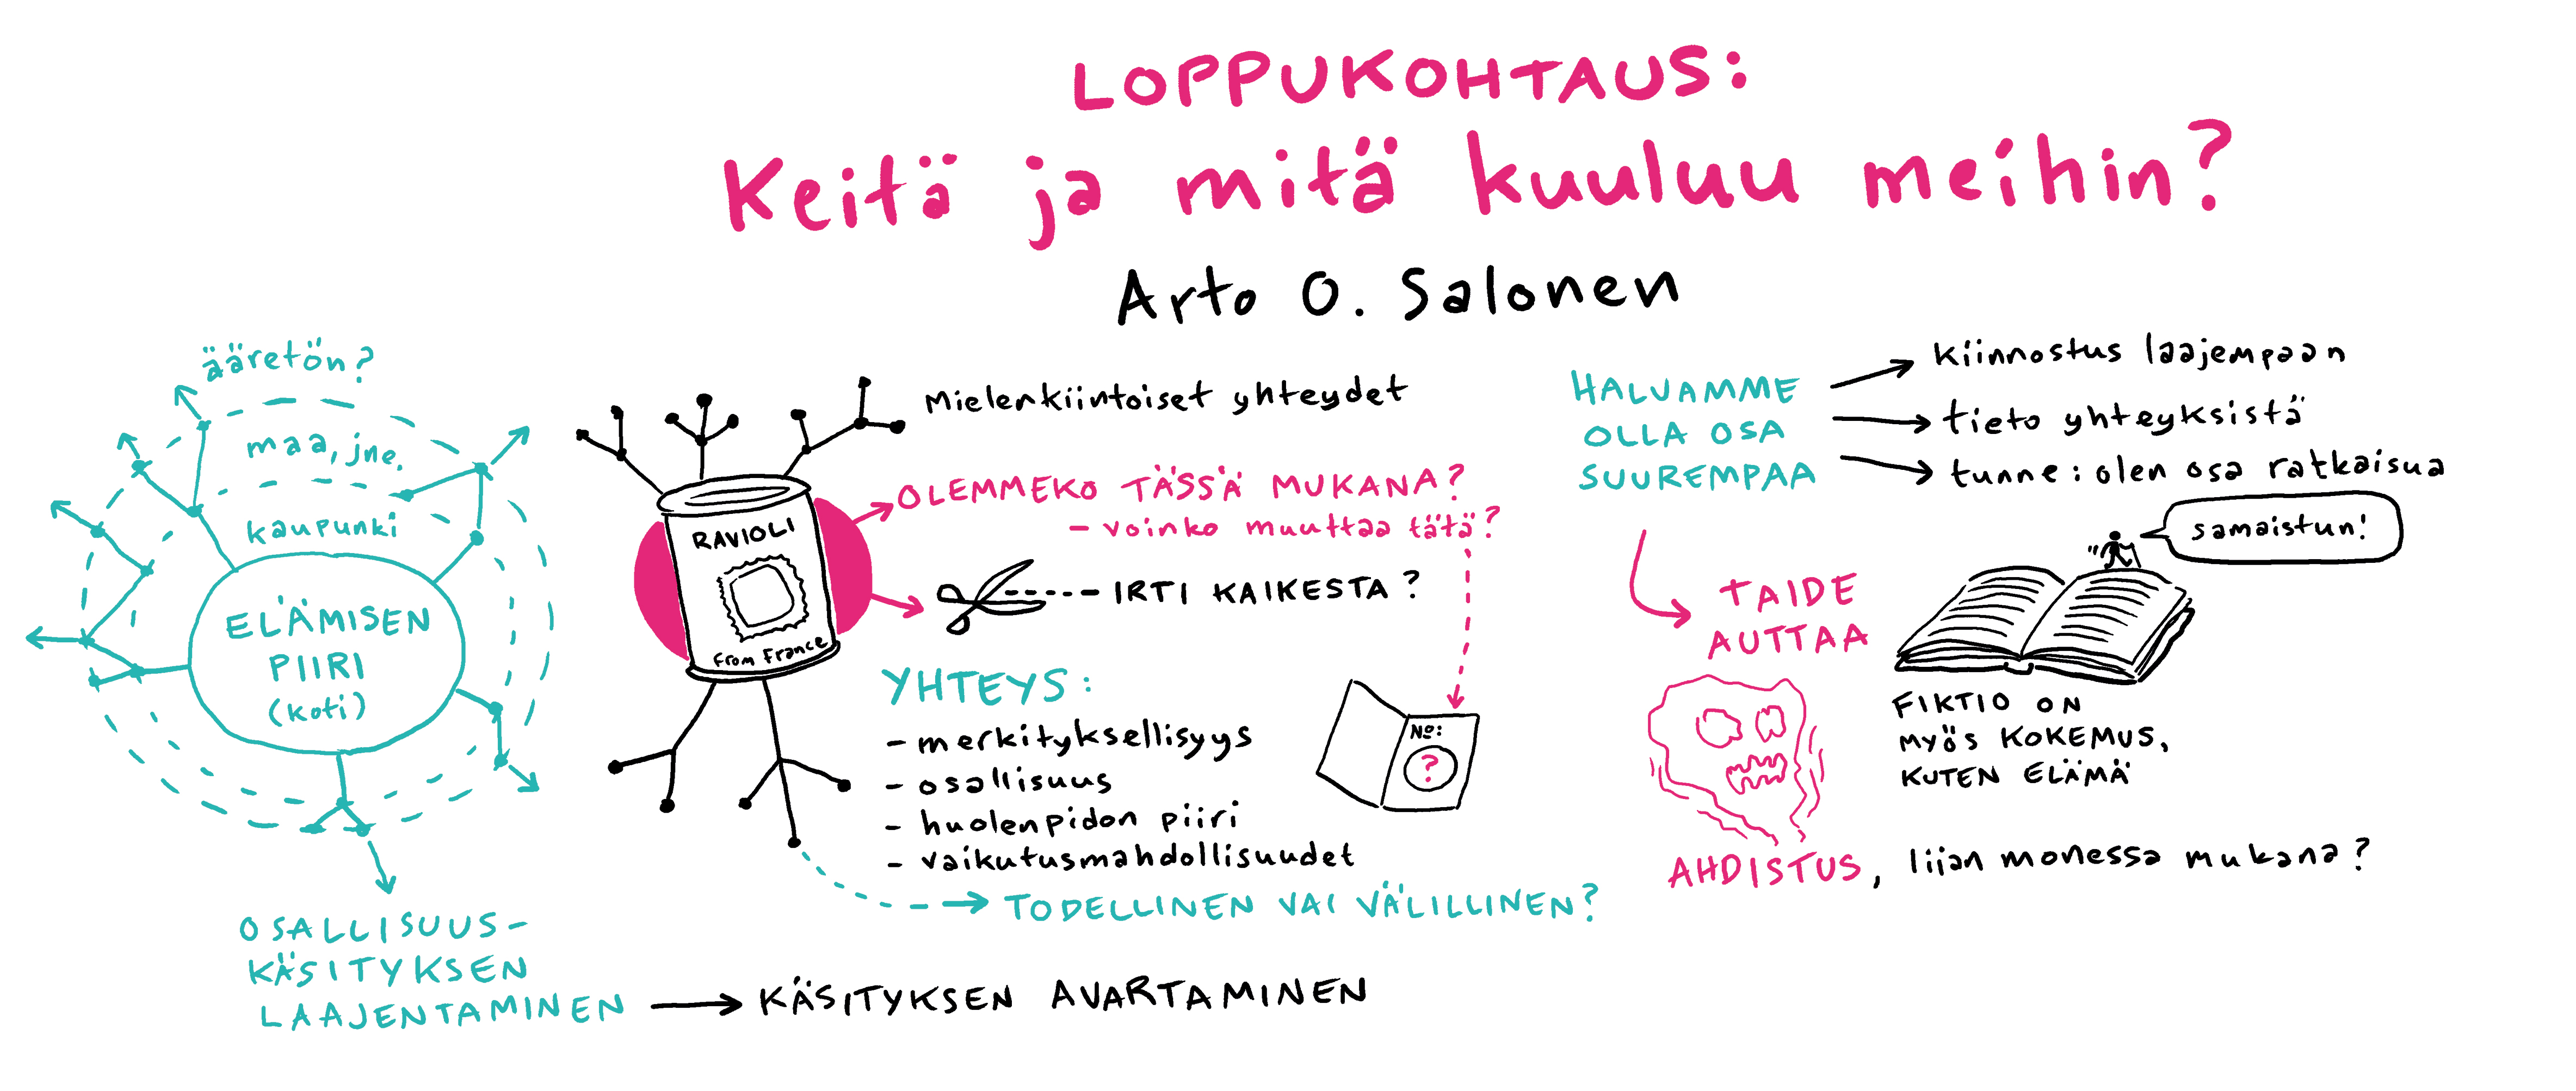 LOPPUKOHTAUS:
Keitä ja mitä kuuluu meihin?
Arto O. Salonen
ääretön?
maa, jne.
kaupunki
ELÄMISEN
PIIRI
(koti)
OSALLISUUS-
KÄSITYKSEN
LAAJENTAMINEN
KÄSITYKSEN AVARTAMINEN
Mielenkiintoiset yhteydet
RAVIOLI
From France
OLEMMEKO TÄSSÄ MUKANA?
- voinko muuttaa tätä?
IRTI KAIKESTA?
YHTEYS:
- merkityksellisyys
- osallisuus
- huolenpidon piiri
- vaikutusmahdollisuudet
TODELLINEN VAI VÄLILLINEN?
No:
?
HALUAMME
OLLA OSA
SUUREMPAA
kiinnostus laajempaan
tieto yhteyksistä
tunne: olen osa ratkaisua
samaistun!
TAIDE
AUTTAA
FIKTIO ON
MYÖS KOKEMUS,
KUTEN ELÄMÄ
AHDISTUS, liian monessa mukana?